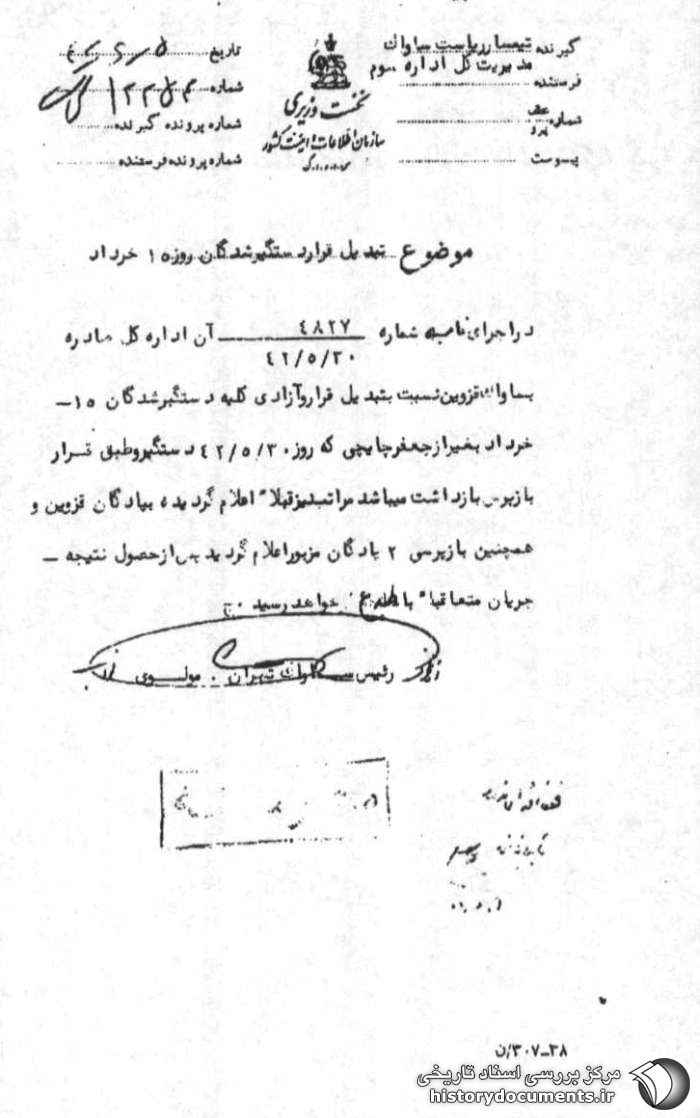 گیرنده تیمسار ریاست ساواک
مدیریت کل اداره سوم
فرستنده
شماره
پیوست
نخست وزیری
سازمان اطلاعات و امنیت کشور
س.ا.و.ا.ک
تاریخ
شماره
شماره پرونده گیرنده
شماره پرونده فرستنده
موضوع تبدیل قرار دستگیرشدگان روز ۱۵ خرداد
در اجرای شماره ۴۸۲۷ آن اداره کل صادره
۴۲/۵/۳۰
بساواک قزوین نسبت بتبدیل قرار و آزادی کلیه دستگیرشدگان ۱۵ –
خرداد بغیر از جعفر چایچی که روز ۴۲/۵/۳۰ دستگیر و طبق قرار
بازپرس بازداشت میباشد مراتب نیز قبلا" اعلام گردیده بپادگان قزوین و
همچنین بازپرسی ۲ پادگان مزبور اعلام گردید پس از حصول نتیجه –
جریان متعاقبا" باطلاع خواهد رسید
رئیس ساواک تهران . مولوی
۳۸–۳۰۷/ن
مرکز بررسی اسناد تاریخی
historydocuments.ir